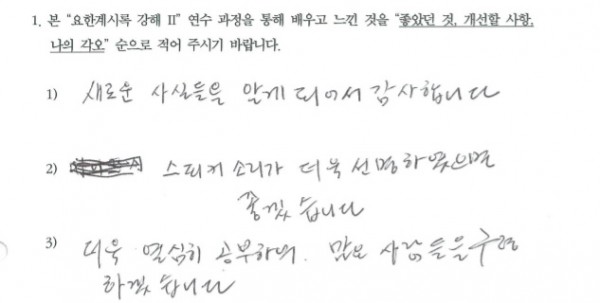 1. 본 "요한계시록 강해 II" 연수 과정을 통해 배우고 느낀 것을 "좋았던 것, 개선할 사항,
나의 각오" 순으로 적어 주시기 바랍니다.
1) 새로운 사실들을 알게 되어서 감사합니다
2) 스피커 소리가 더욱 선명하였으면
좋겠습니다
3) 더욱 열심히 공부하며. 많은 사람들을 구원
하겠습니다